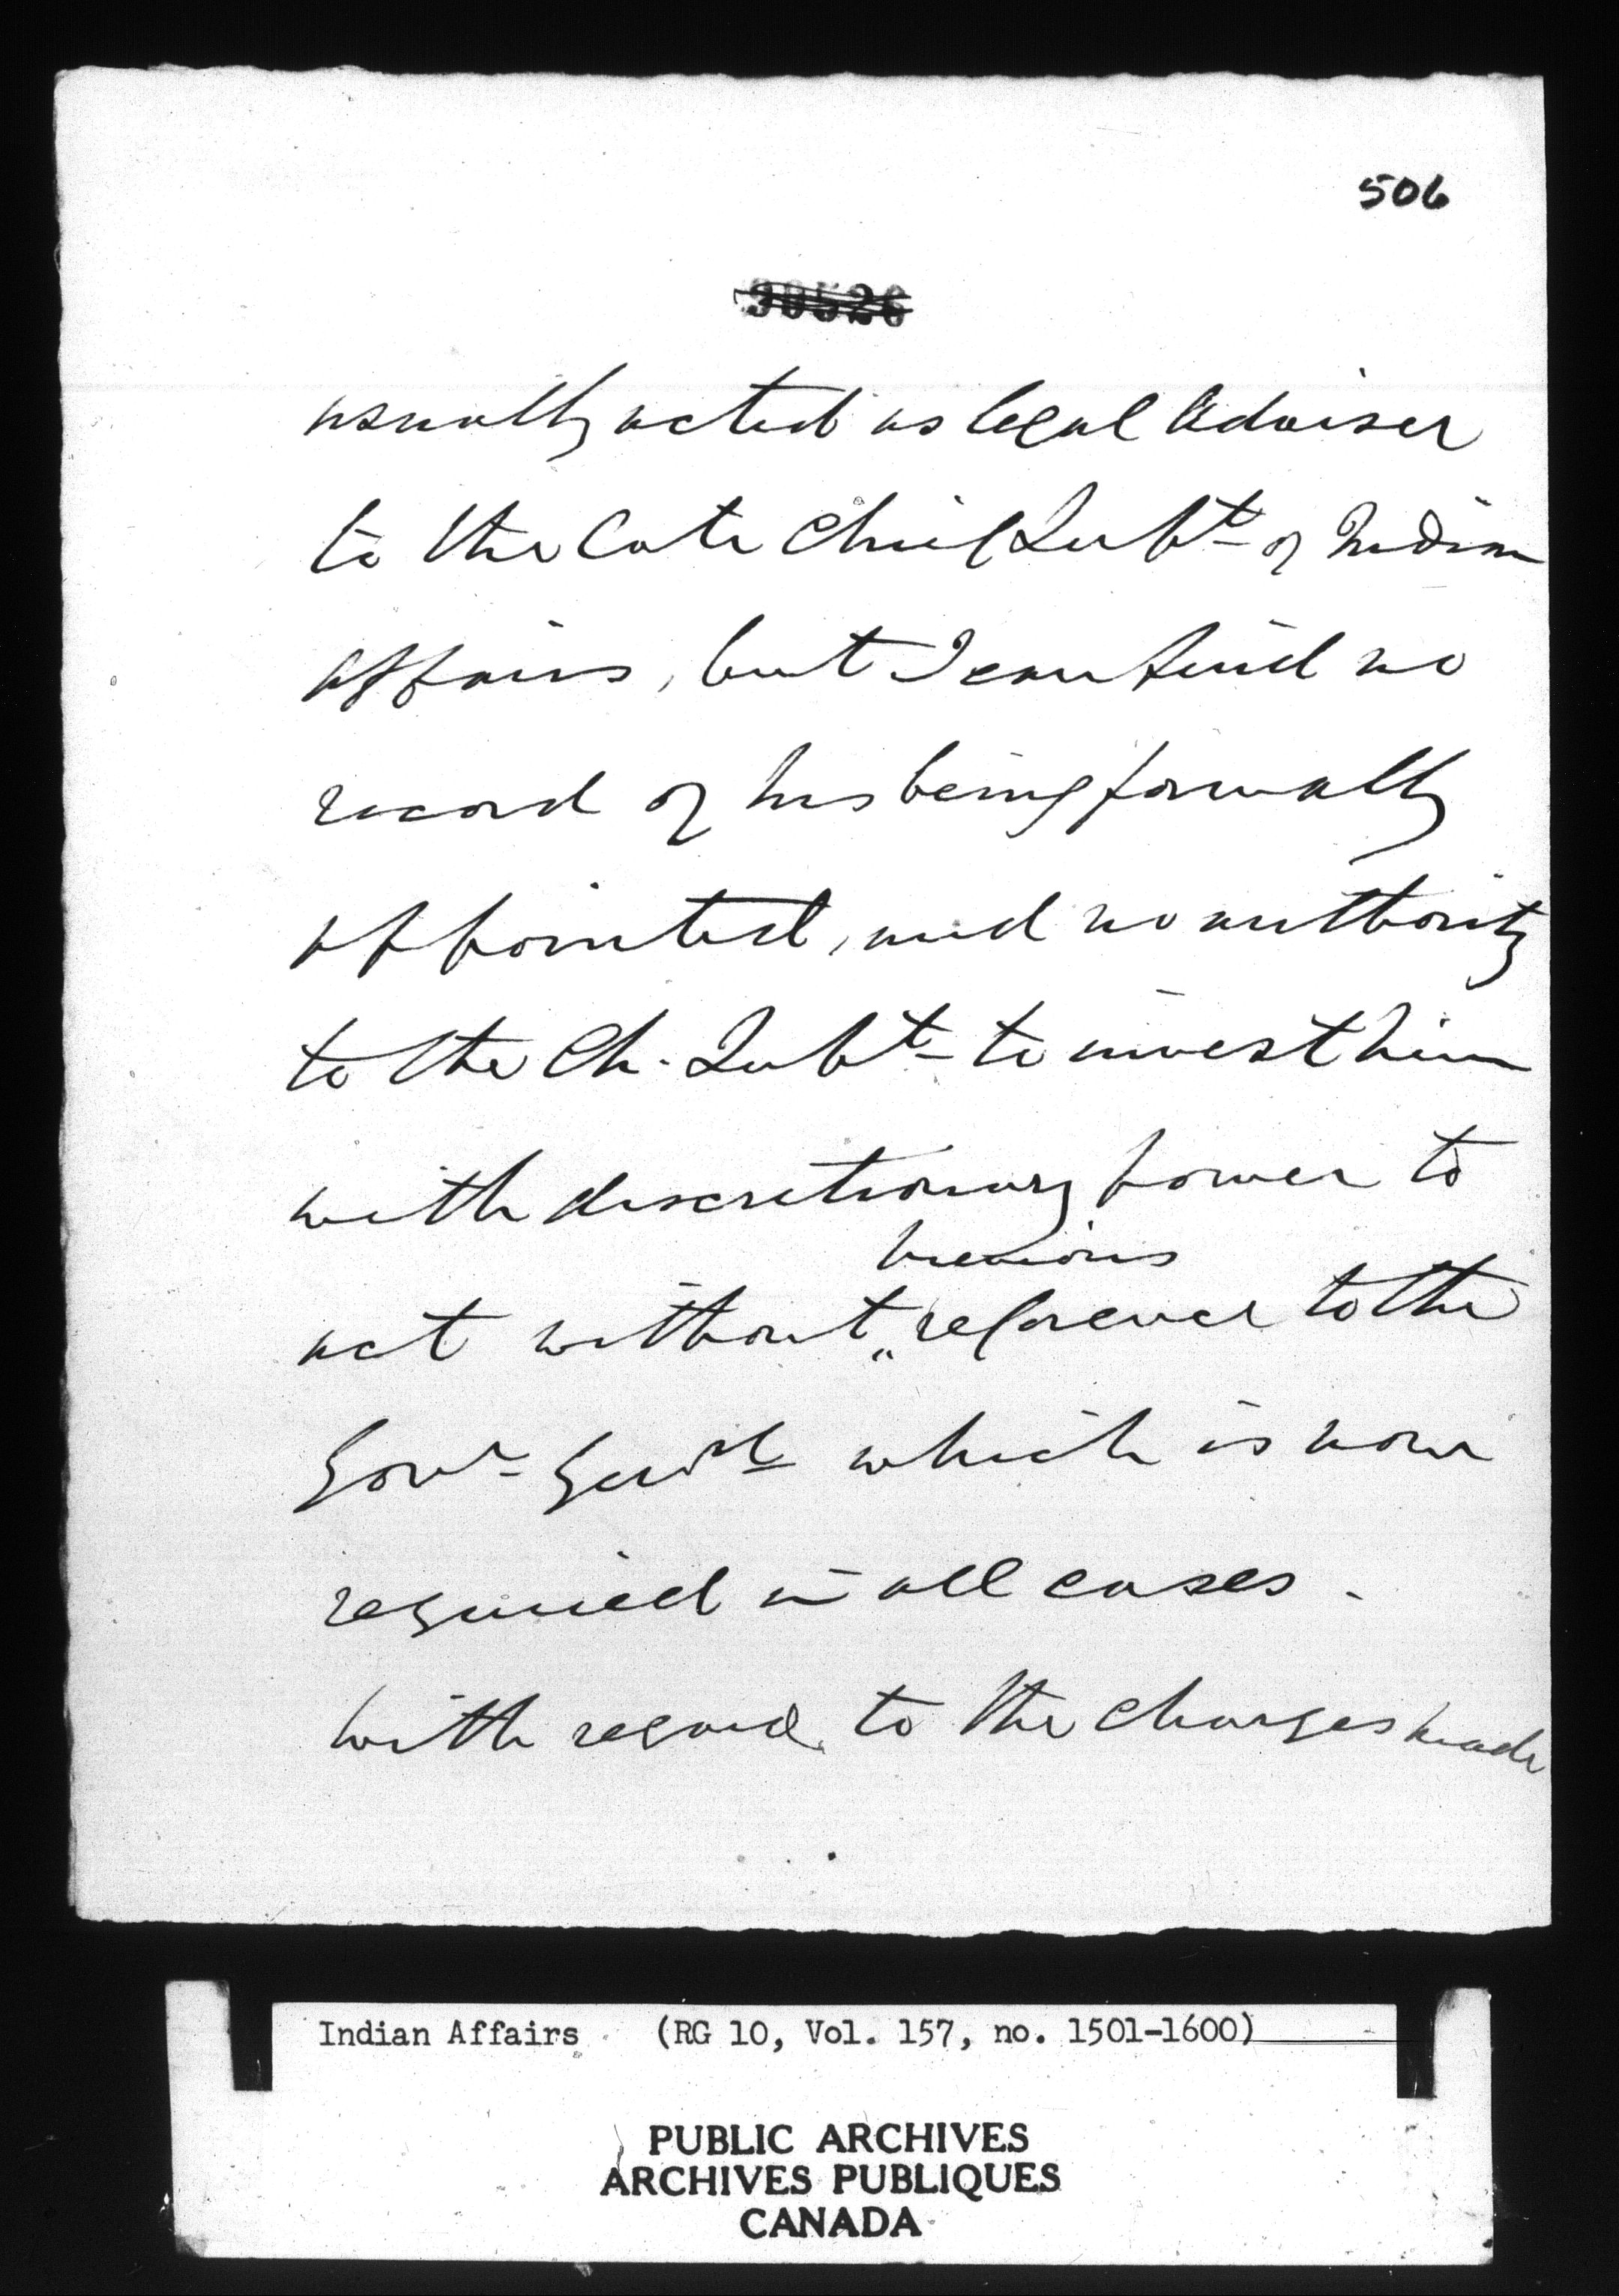 506
90526
usually acted as legal Adviser
to the late Chief Supt of Indian
Affairs, but I can find no
record of his being formally
appointed, and no authority
to the Ch. Supt to invest him
with discretionary power to
previous
act without " reference to the
Govr Genrl which is now
required in all cases.
With regard to the charges made
Indian Affairs (RG 10, Vol. 157, no. 1501-1600)
PUBLIC ARCHIVES
ARCHIVES PUBLIQUES
CANADA